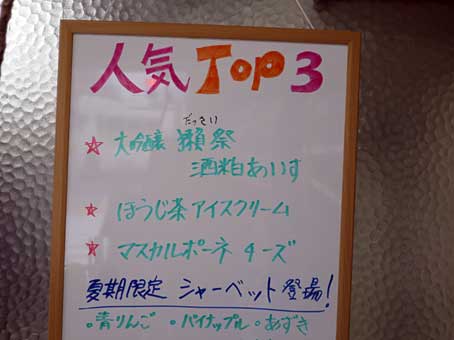 人気 Top 3
だっさい
☆ 大吟醸 獺祭
酒粕あいす
☆ ほうじ茶アイスクリーム
☆ マスカルポーネ チーズ
夏期限定 シャーベット 登場!
。青りんご 。パイナップル 。あずき